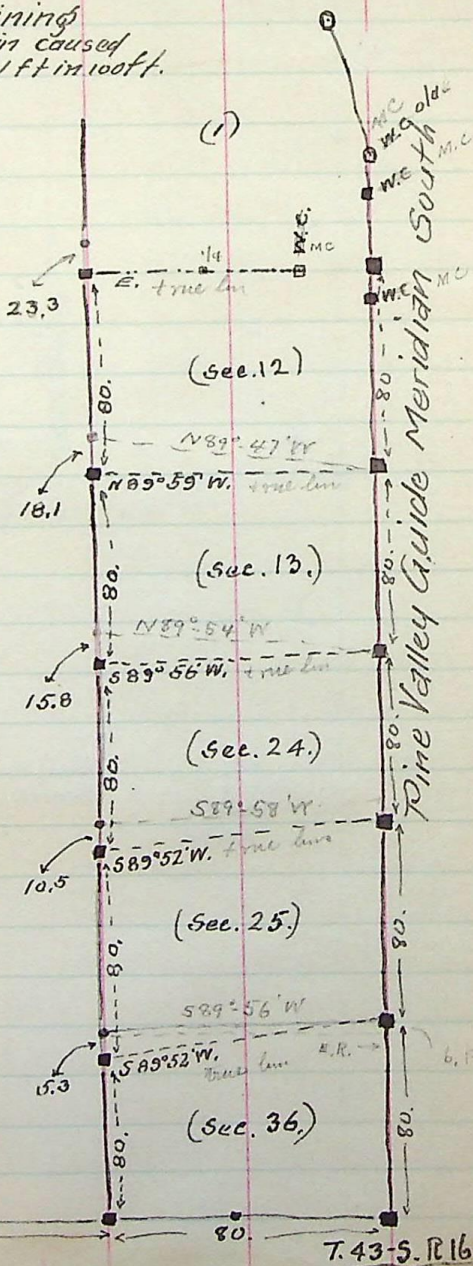 ining
in caused
1 ft in 100 ft.
(1)
MC
W.C old
M.C
W.C
W.C. MC
1/4
E. true lin
W.C MC
23.3
80.
(Sec. 12)
80
N89°-47'W
18.1
N 89° 59' W. true lin
80.
(Sec. 13.)
80.
N89°-54' W
15.8
S 89° 56' W. true lin
80.
(Sec. 24.)
80.
S89°-58' W
10.5
S 89° 52' W. true line
80.
(Sec. 25.)
80.
S89°-56' W
5.3
S 89° 52' W.
true lin
80.
(Sec. 36.)
80.
80.
Pine Valley Guide Meridian South
T. 43-S. R 16